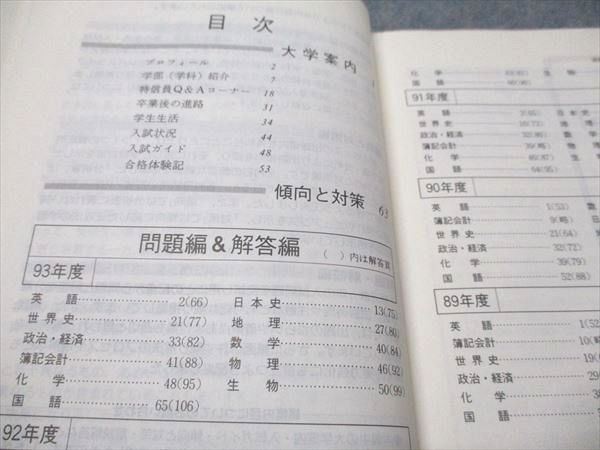 目次
大学案内 1
プロフィール 2
学部（学科）紹介 7
特信員Q&Aコーナー 18
卒業後の進路 31
学生生活 34
入試状況 44
入試ガイド 48
合格体験記 53
傾向と対策 63
問題編&解答編 （ ）内は解答頁
93年度
英語 2(66) 日本史 13(75)
世界史 21(77) 地理 27(80)
政治・経済 33(82) 数学 40(84)
簿記会計 41(88) 物理 46(92)
化学 48(95) 生物 50(99)
国語 65(106)
92年度
化学
国語
91年度
英語 日本史
世界史 地理
政治・経済 数学
簿記会計 39(略) 物
化学 46(87) 生
国語 64(95)
90年度
英語 1(53) 数
簿記会計 9(略) 日
世界史 21(64) 地
政治・経済 32(72)
化学 39(79)
国語 52(88)
89年度
英語 1(52
簿記会計 10(略
世界史 19(6
政治・経済 29(
化学
国語